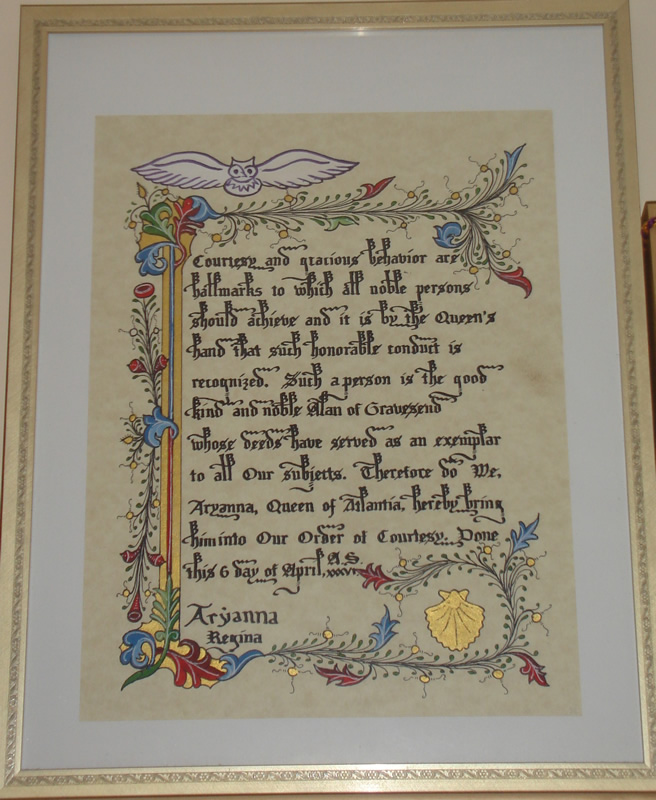 Courtesy and gracious behavior are
hallmarks to which all noble persons
should achieve and it is by the Queen's
hand that such honorable conduct is
recognized. Such a person is the good
kind and noble Alan of Gravesend
whose deeds have served as an exemplar
to all Our subjects. Therefore do We,
Aryanna, Queen of Atlantia, hereby bring
him into Our Order of Courtesy. Done
this 6 day of April, A.S. xxxvi.
Aryanna
Regina